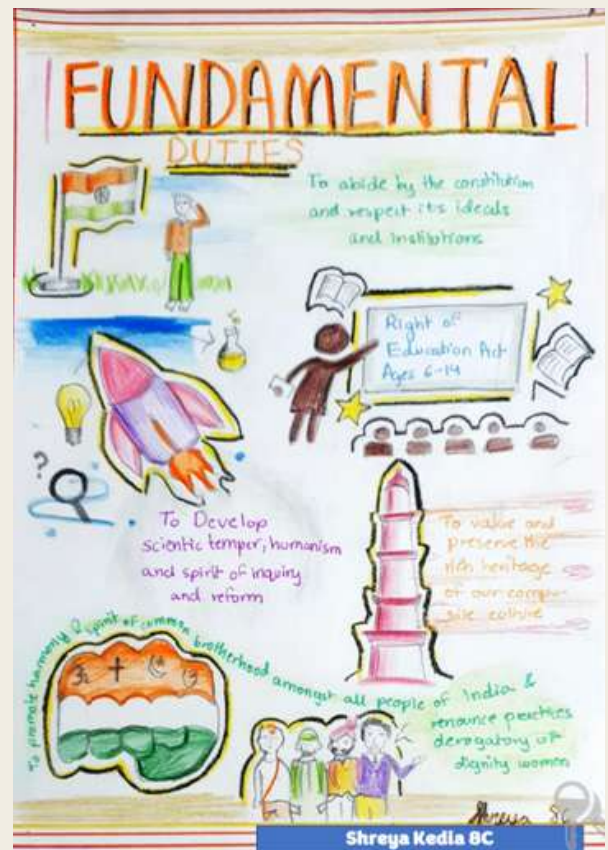 FUNDAMENTAL
DUTIES
To abide by the constitution
and respect its ideals
and Institutions
Right of
Education Act
Ages 6-14
?
To Develop
scientic temper, humanism
and spirit of inquiry
and reform
To value and
preserve the
rich heritage
of our compo-
site culture
To promote harmony & spirit of common brotherhood amongst all people of India &
renounce practices
derogatory of
dignity women
Shreya 8C
Shreya Kedia 8C